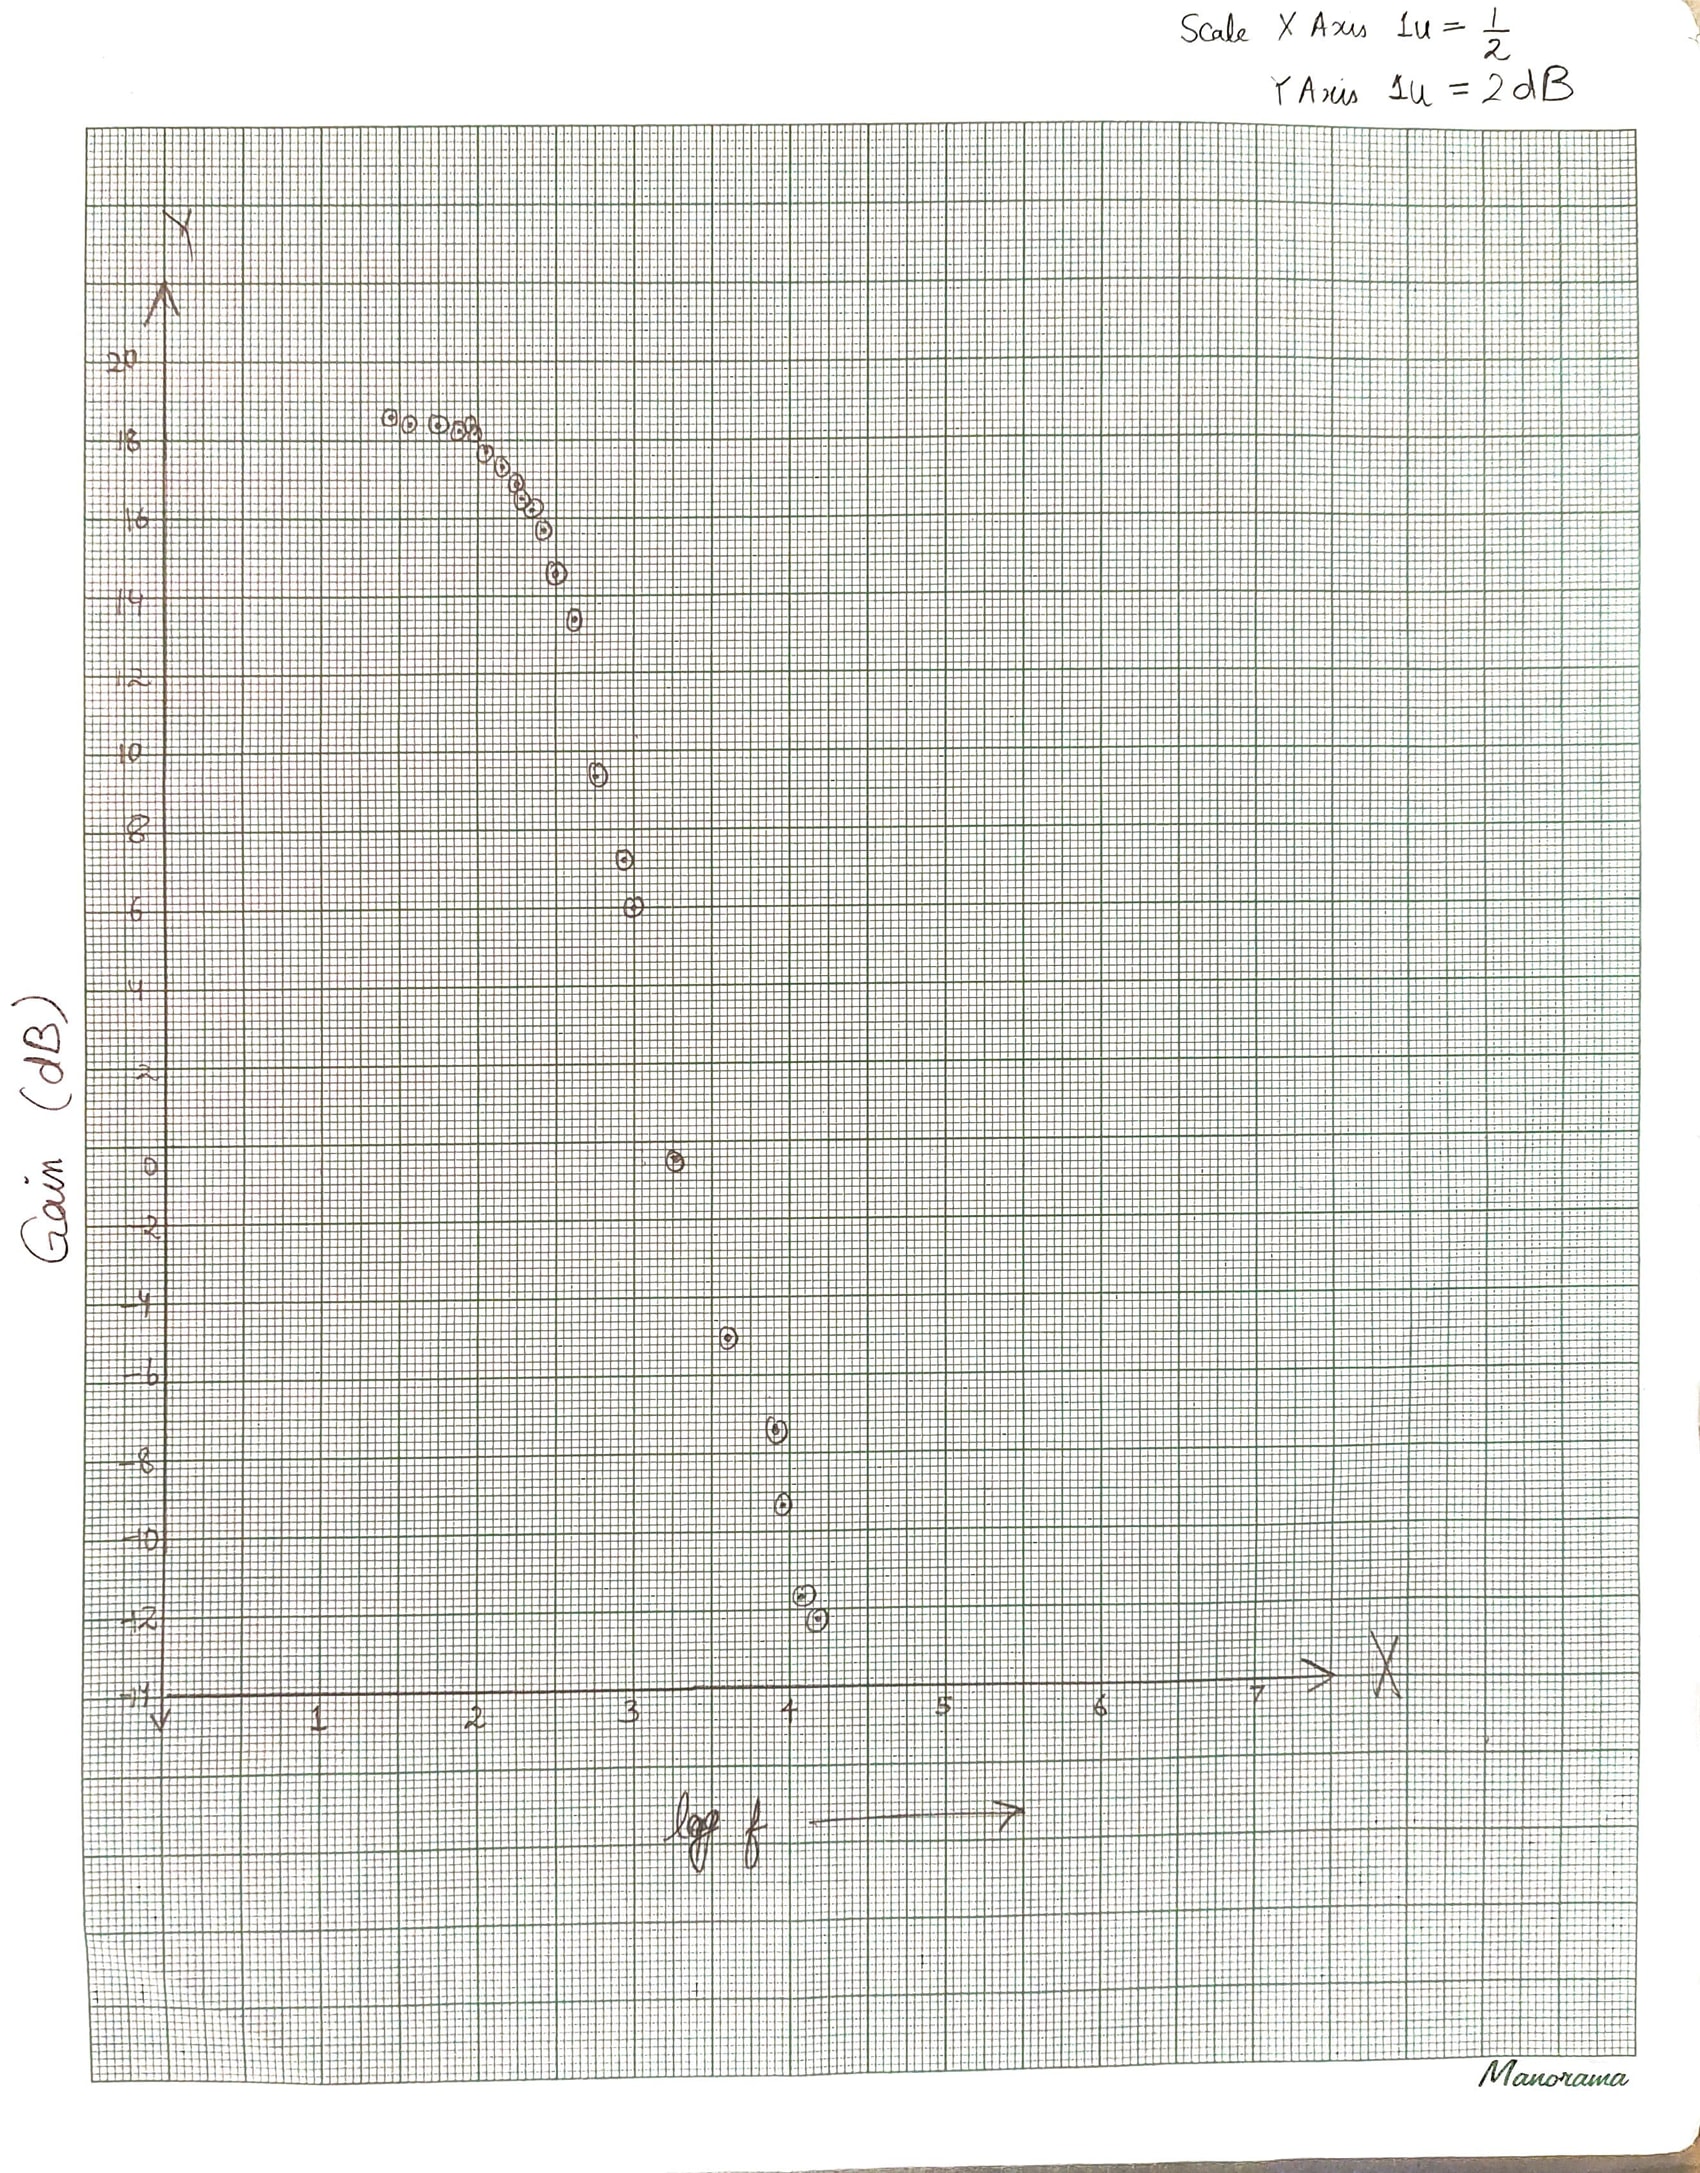 Scale X Axis 1u = 1/2
Y Axis 1u = 2dB
Y
20
18
16
14
12
10
8
6
4
2
0
-2
-4
-6
-8
-10
-12
-14
Gain (dB)
1 2 3 4 5 6 7
X
log f
Manorama